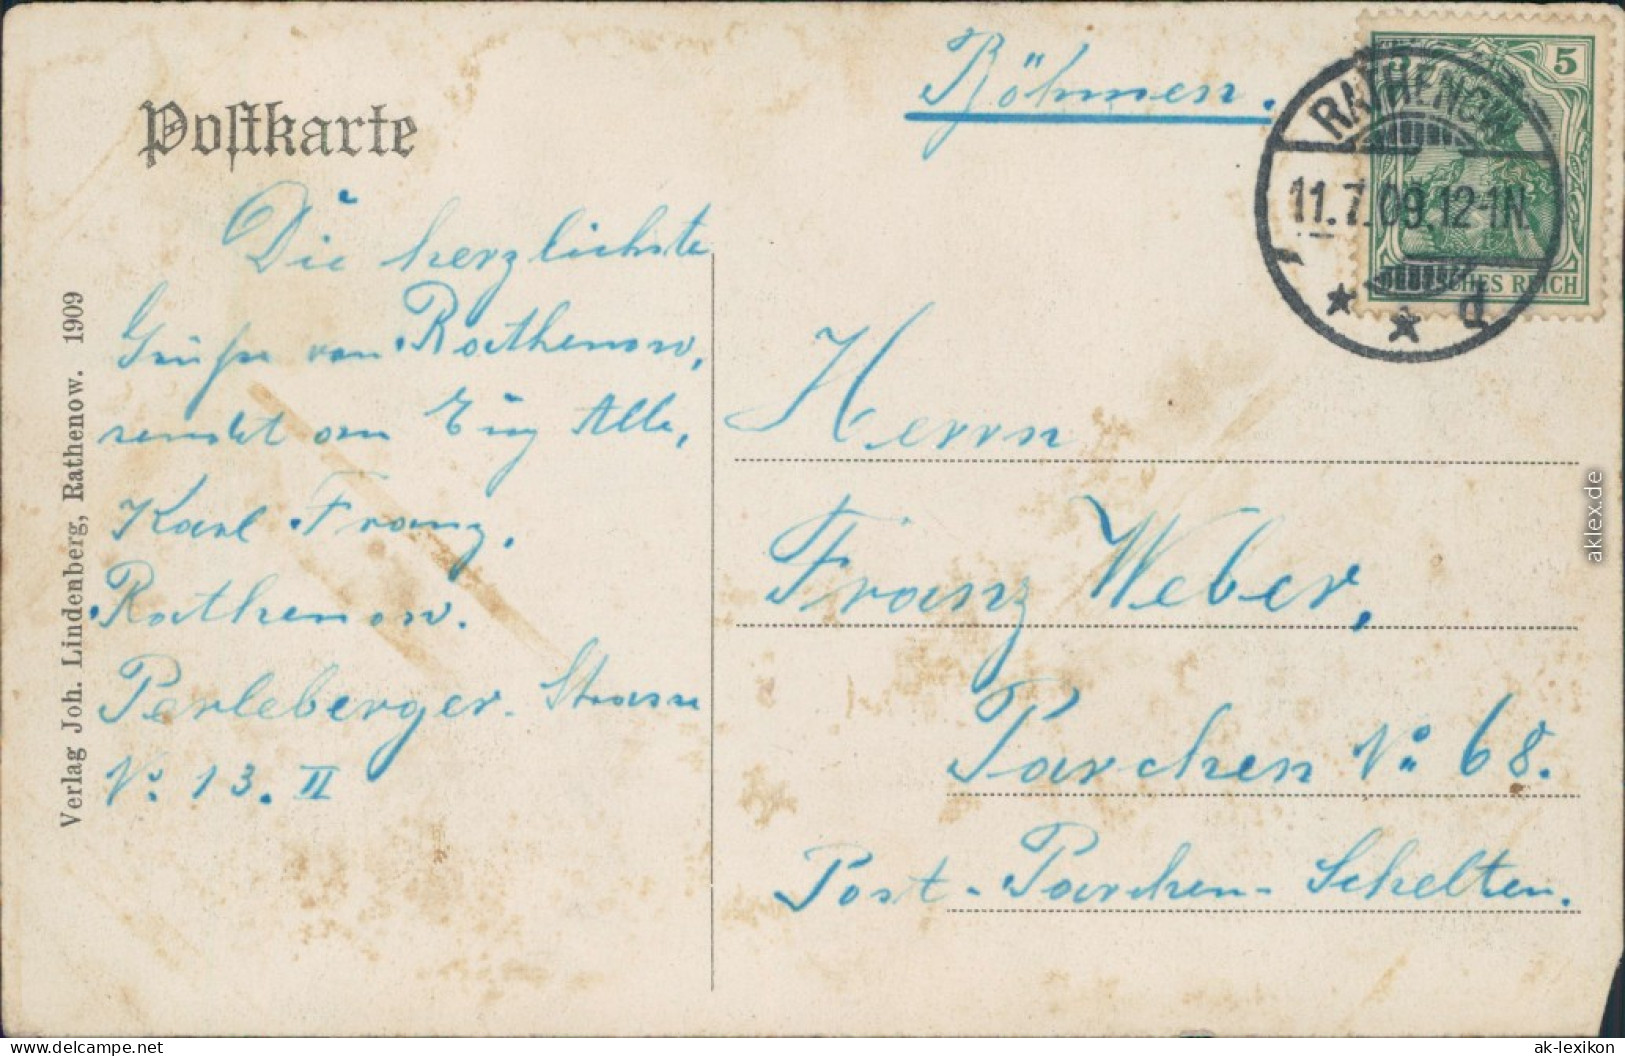 Postkarte
Böhmen.
5
RATHENOW
11.7.09.12-1N.
d
DEUTSCHES REICH
Die herzlichste
Grüße von Rathenow,
sendet an Euch Alle,
Karl Franz.
Rathenow.
Perleberger-Strasse
No. 13. II
Herrn
Franz Weber,
Parchen No 68.
Post-Parchen-Schelten.
Verlag Joh. Lindenberg, Rathenow. 1909
aklex.de
www.delcampe.net
ak-lexikon